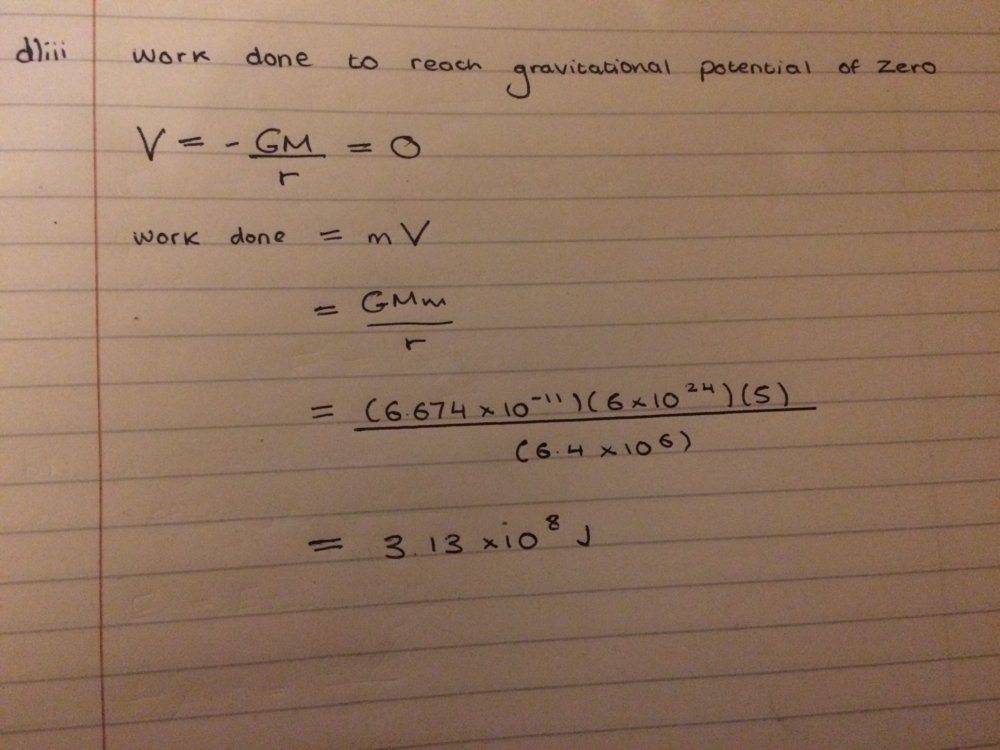 d)iii work done to reach gravitational potential of zero
V = - GM/r = 0
work done = mV
= GMm/r
= (6.674 × 10⁻¹¹)(6×10²⁴)(5)/(6.4 ×10⁶)
= 3.13 ×10⁸ J